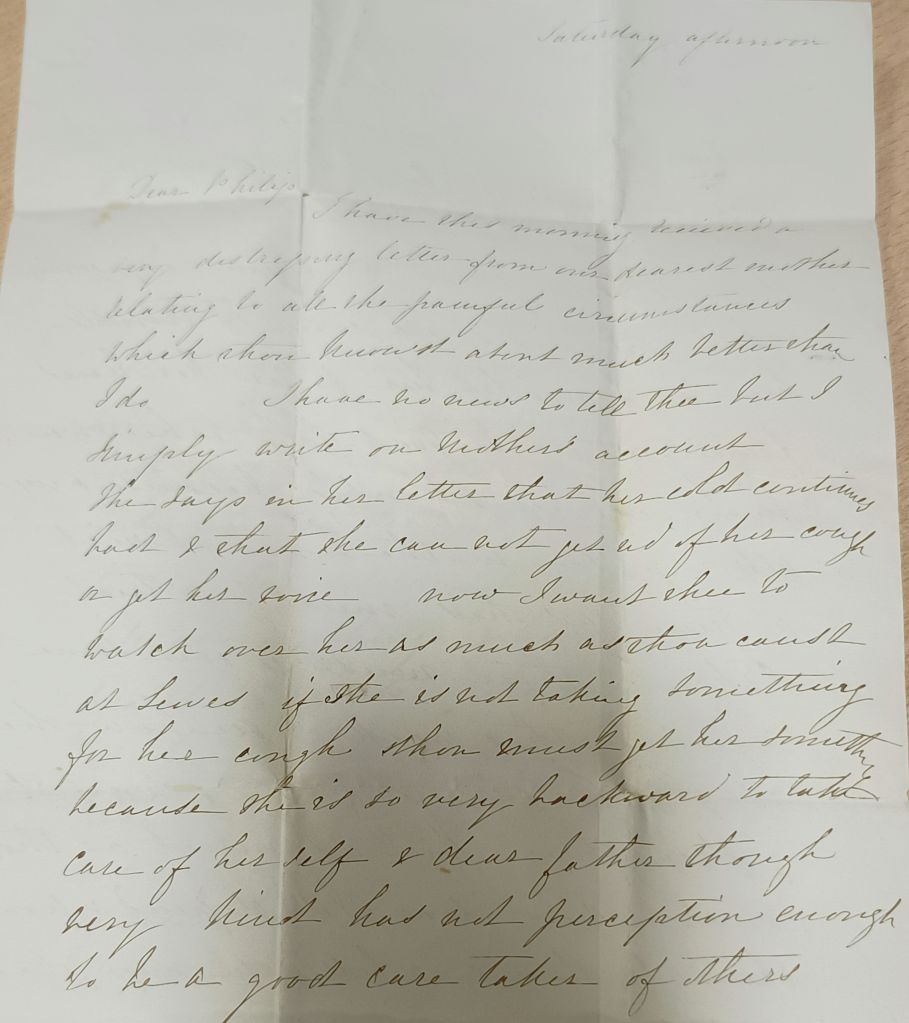 Saturday afternoon
Dear Philip
I have this morning received a
very distressing letter from our dearest mother
relating to all the painful circumstances
which thou knowst about much better than
I do I have no news to tell thee but I
simply write on Mother's account
She says in her letter that her cold continues
bad & that she can not get rid of her cough
or get her voice now I want thee to
watch over her as much as thou canst
at Lewes if she is not taking something
for her cough thou must get her something
because she is so very backward to take
care of her self & dear father though
very kind has not perception enough
to be a good care taker of others